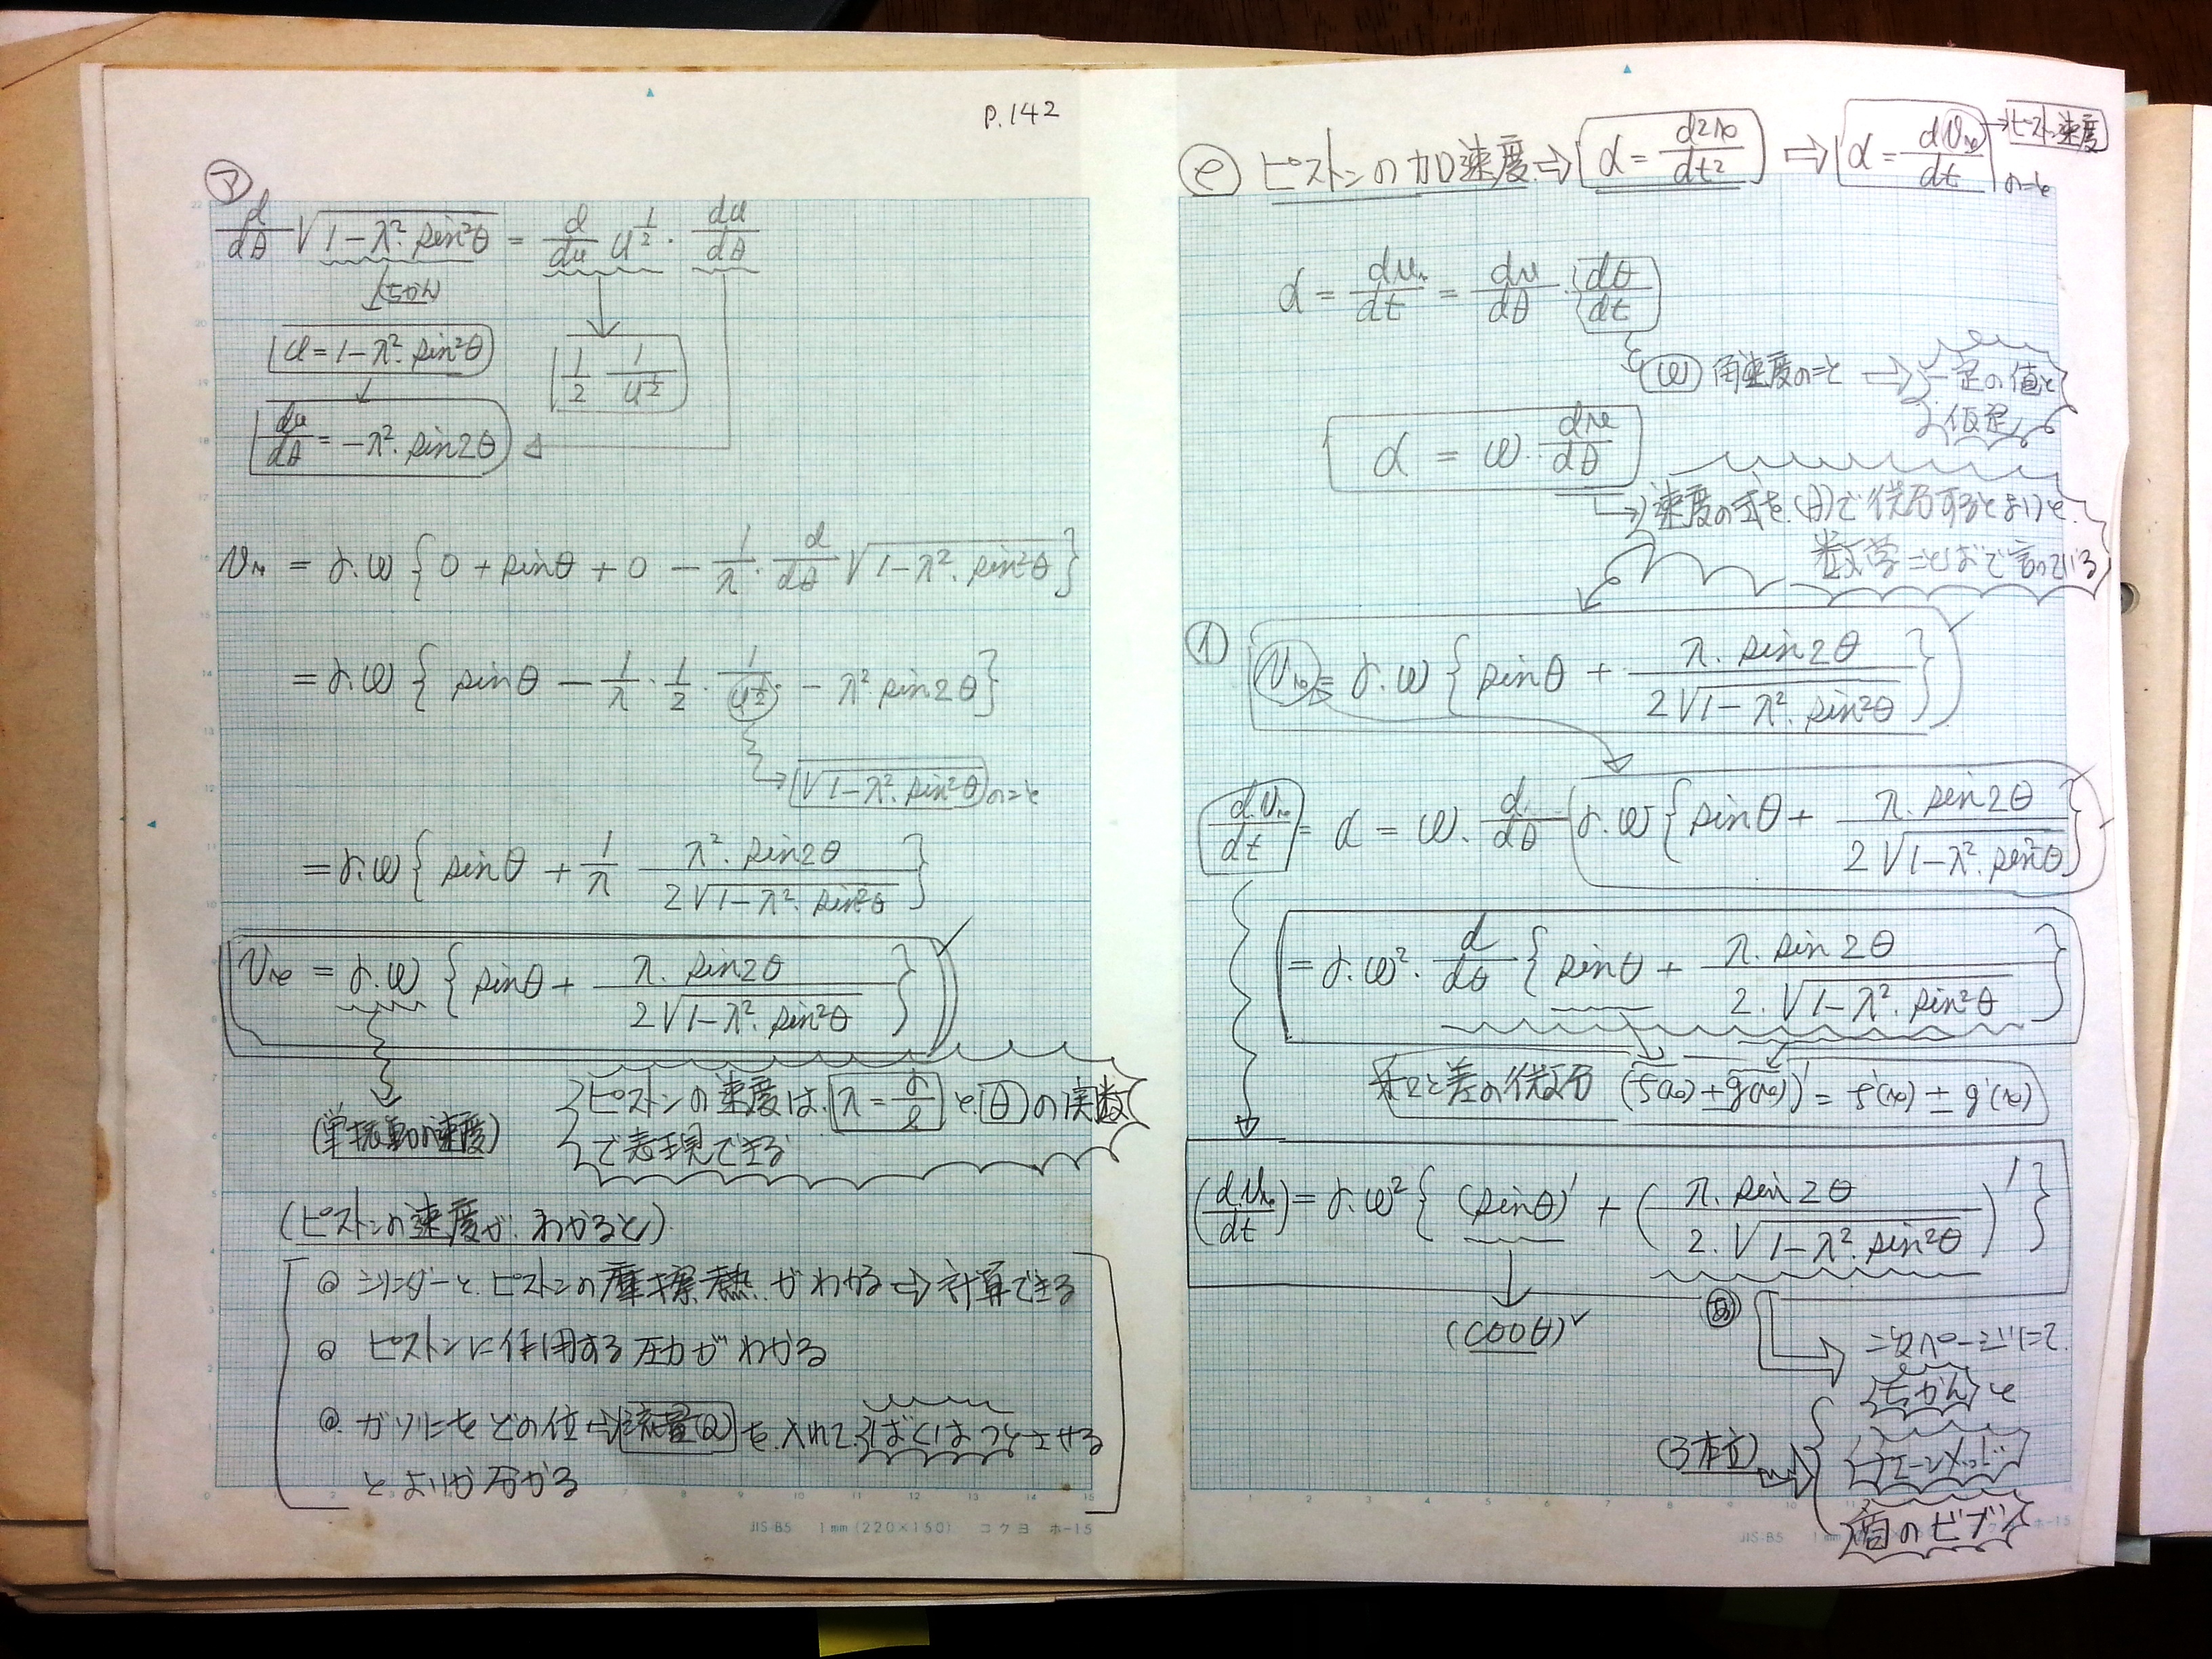 P.142
ア
d/dθ √(1-λ²·sin²θ) = d/du u^(1/2) · du/dθ
ちかん
u=1-λ²·sin²θ
1/2 1/u^(1/2)
du/dθ = -λ²·sin2θ
v_x = r·ω { 0 + sinθ + 0 - 1/λ · d/dθ √(1-λ²·sin²θ) }
= r·ω { sinθ - 1/λ · 1/2 · 1/u^(1/2) · - λ² sin2θ }
√(1-λ²·sin²θ) のこと
= r·ω { sinθ + 1/λ λ²·sin2θ / 2√(1-λ²·sin²θ) }
v_x = r·ω { sinθ + λ·sin2θ / 2√(1-λ²·sin²θ) }
(単振動の速度)
ピストンの速度は λ=r/l と θ の関数
で表現できる
(ピストンの速度が、わかると)
◎ シリンダーと、ピストンの摩擦熱がわかる⇒計算できる
◎ ピストンに作用する圧力がわかる
◎ ガソリンをどの位⇒流量(Q)を入れて、ばくはつさせる
とよいか分かる
JIS-B5 1mm(220×150) コクヨ ホ-15
e ピストンの加速度⇒ α = d²x/dt² ⇒ α = dv_x/dt のこと → ピストン速度
α = dv_x/dt = dv/dθ · dθ/dt
ω 角速度のこと ⇒ 一定の値と
仮定
α = ω · dv_x/dθ
→ 速度の式を(θ)で微分するとよいと
数学ことばで言っている
イ v_x = r·ω { sinθ + λ·sin2θ / 2√(1-λ²·sin²θ) }
dv_x/dt = α = ω · d/dθ ( r·ω { sinθ + λ·sin2θ / 2√(1-λ²·sin²θ) } )
= r·ω² · d/dθ { sinθ + λ·sin2θ / 2·√(1-λ²·sin²θ) }
和と差の微分 (f(x) ± g(x))' = f'(x) ± g'(x)
(dv_x/dt) = r·ω² { (sinθ)' + ( λ·sin2θ / 2·√(1-λ²·sin²θ) )' }
(cosθ)
あ
次ページにて
ちかんと
(3本立)
商のビブン
JIS-B5